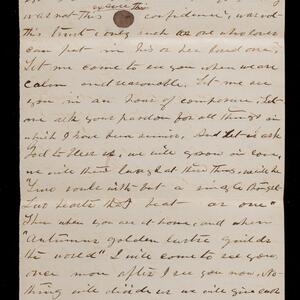 excuse this
was not this confidence, was not
this trust only such as one who loves
can put in his or her loved one.
Let me come to see you when we are
calm and reasonable. Let me see
you in an hour of composure, let
me ask your pardon for all things in
which I have been
And let us ask
God to bless us, we will grow in love,
we will then laugh at these things, we'll be
"Two souls with but a single thought
Two hearts that beat as one"
Then when you are at home, and when
"Autumns golden lustre guilds
the world" I will come to see you,
once more after I see you now, No-
thing will divide us we will give each